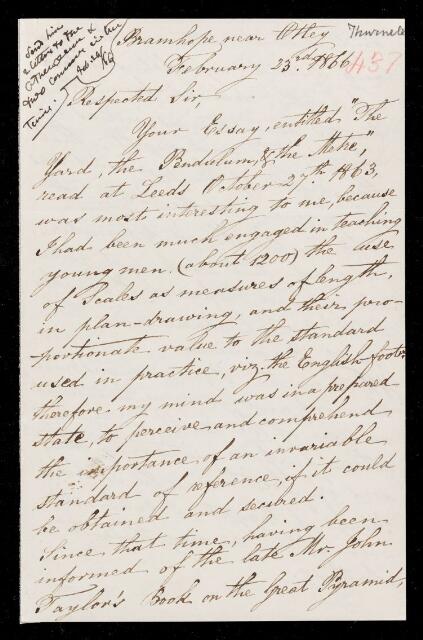 Send him
a letter to the
Athenaeum &
two
Times.
Bramhope near Otley
Thurnell
February 23rd 1866
437
Respected Sir,
Your Essay, entitled "The
Yard, the Pendulum, & the Metre,"
read at Leeds October 27th 1863,
was most interesting to me, because
I had been much engaged in teaching
young men (about 1200) the use
of Scales as measures of length,
in plan-drawing, and their pro-
-portionate value to the standard
used in practice, viz. the English foot;
therefore my mind was in a prepared
state, to perceive and comprehend
the importance of an invariable
standard of reference, if it could
be obtained and secured.
Since that time, having been
informed of the late Mr. John
Taylor's book on the Great Pyramid,